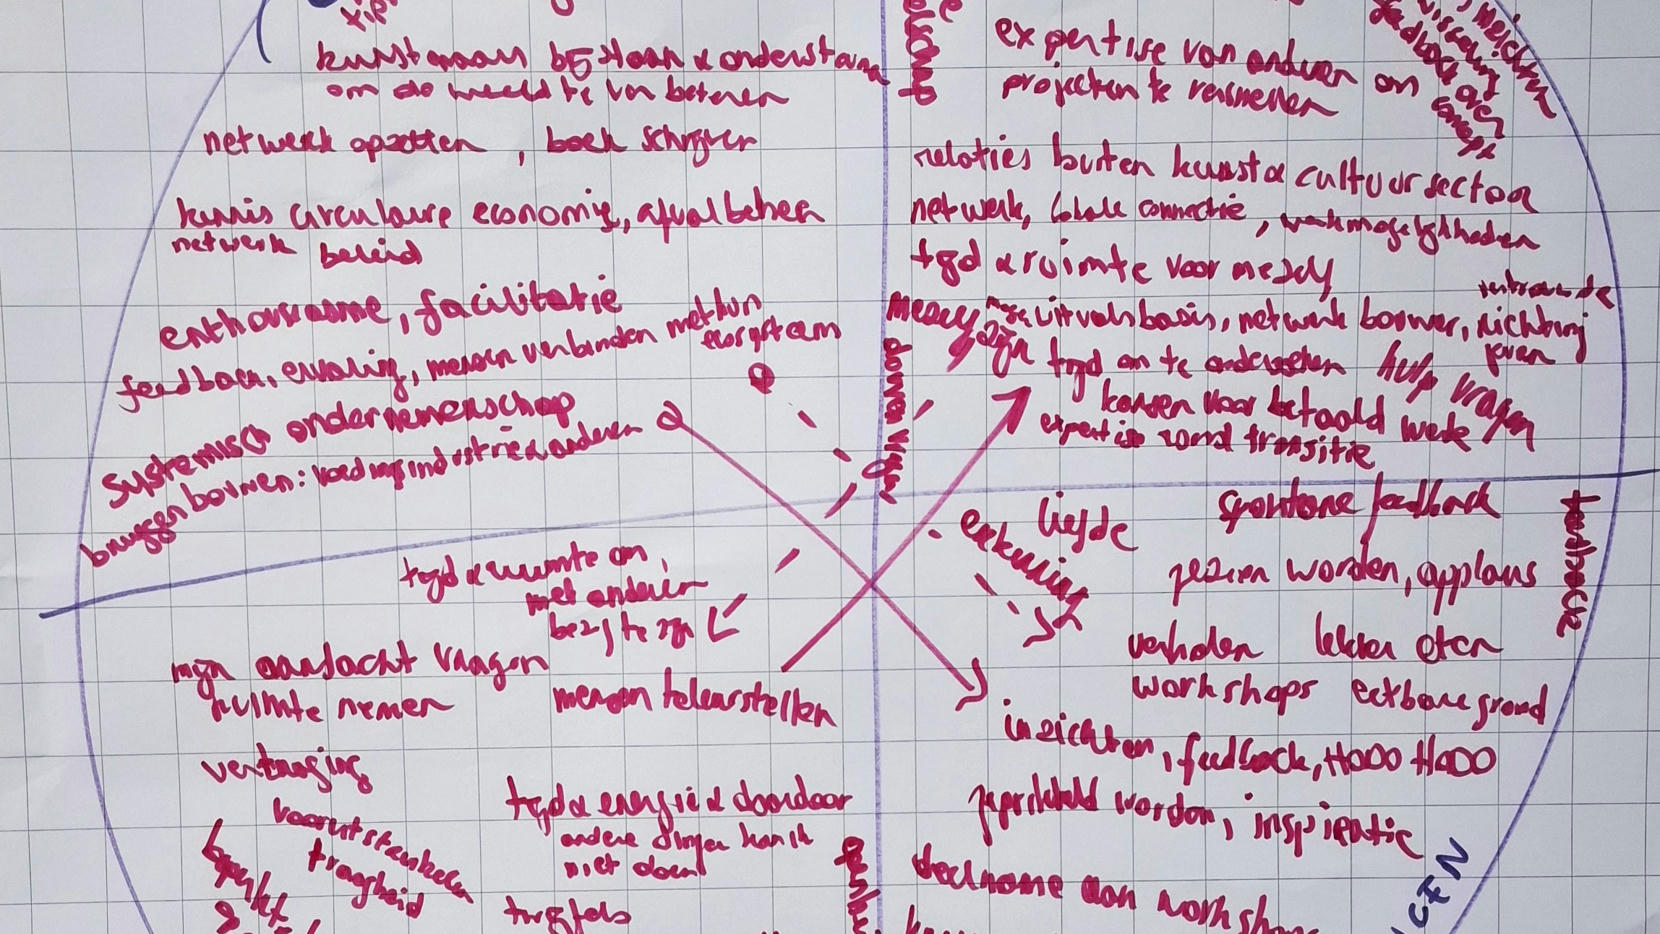 kunstenaars bijstaan & ondersteunen
om de wereld te verbeteren
netwerk opzetten, boek schrijven
kennis circulaire economie, afvalbeheer
netwerk beleid
enthousiasme, facilitatie
feedback, ervaring, mensen verbinden met hun
ecosysteem
systemisch ondernemerschap
bruggen bouwen: voedingsindustrie & anderen
expertise van anderen om
projecten te versnellen
feedback over
relaties buiten kunst & cultuursector
netwerk, lokale connectie, werkmogelijkheden
tijd & ruimte voor mezelf
mezelf zijn
uitvalsbasis, netwerk bouwen, richting
geven
tijd om te onderzoeken
hulp vragen
kansen voor betaald werk
expertise rond transitie
tijd & ruimte om
met anderen
bezig te zijn
mijn aandacht vragen
ruimte nemen
mensen teleurstellen
vertraging
vooruitstrubbelen
traagheid
tijd & energie & daardoor
andere dingen kan ik
niet doen
twijfels
liefde
spontane feedback
erkenning
gezien worden, applaus
verhalen
lekker eten
workshops
eetbare grond
inzichten, feedback, HOOO HOOO
geprikkeld worden, inspiratie
deelname aan workshops